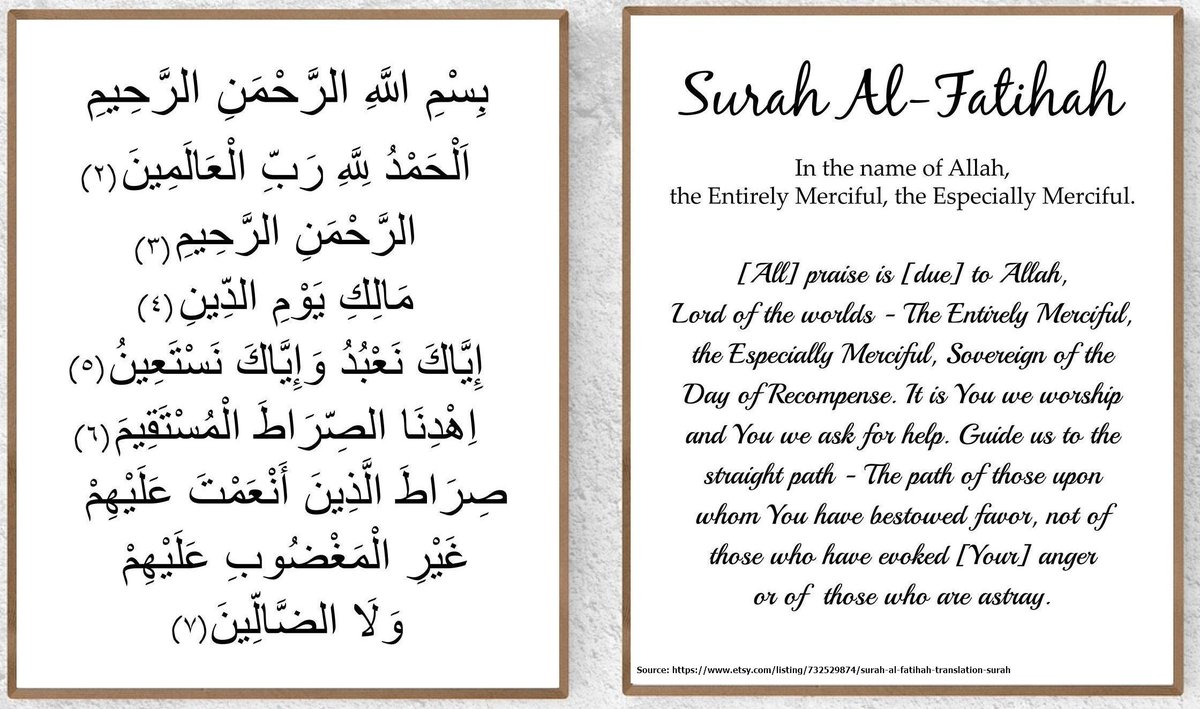 بِسْمِ اللَّهِ الرَّحْمَنِ الرَّحِيمِ
اَلْحَمْدُ لِلَّهِ رَبِّ الْعَالَمِينَ (٢)
الرَّحْمَنِ الرَّحِيمِ (٣)
مَالِكِ يَوْمِ الدِّينِ (٤)
إِيَّاكَ نَعْبُدُ وَإِيَّاكَ نَسْتَعِينُ (٥)
اِهْدِنَا الصِّرَاطَ الْمُسْتَقِيمَ (٦)
صِرَاطَ الَّذِينَ أَنْعَمْتَ عَلَيْهِمْ
غَيْرِ الْمَغْضُوبِ عَلَيْهِمْ
وَلَا الضَّالِّينَ (٧)
Surah Al-Fatihah
In the name of Allah,
the Entirely Merciful, the Especially Merciful.
[All] praise is [due] to Allah,
Lord of the worlds - The Entirely Merciful,
the Especially Merciful, Sovereign of the
Day of Recompense. It is You we worship
and You we ask for help. Guide us to the
straight path - The path of those upon
whom You have bestowed favor, not of
those who have evoked [Your] anger
or of those who are astray.
Source: https://www.etsy.com/listing/732529874/surah-al-fatihah-translation-surah